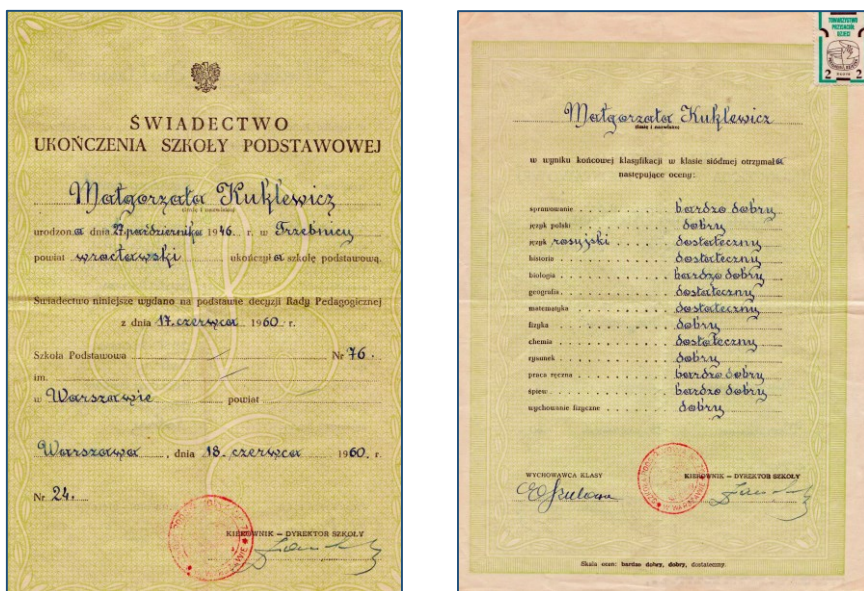 ŚWIADECTWO
UKOŃCZENIA SZKOŁY PODSTAWOWEJ
Małgorzata Kuklewicz
(imię i nazwisko)
urodzona dnia 27 października 1946. r. w Trzebnicy
powiat wrocławski ukończyła szkołę podstawową.
Świadectwo niniejsze wydano na podstawie decyzji Rady Pedagogicznej
z dnia 17. czerwca 1960. r.
Szkoła Podstawowa Nr 76.
im.
w Warszawie powiat
Warszawa, dnia 18. czerwca 1960. r.
Nr 24.
KIEROWNIK – DYREKTOR SZKOŁY
TOWARZYSTWO
PRZYJACIÓŁ
DZIECI
2 2
Małgorzata Kuklewicz
(imię i nazwisko)
w wyniku końcowej klasyfikacji w klasie siódmej otrzymała
następujące oceny:
sprawowanie bardzo dobry
język polski dobry
język rosyjski dostateczny
historia dostateczny
biologia bardzo dobry
geografia dostateczny
matematyka dostateczny
fizyka dobry
chemia dostateczny
rysunek dobry
praca ręczna bardzo dobry
śpiew bardzo dobry
wychowanie fizyczne dobry
WYCHOWAWCA KLASY
KIEROWNIK – DYREKTOR SZKOŁY
Skala ocen: bardzo dobry, dobry, dostateczny.